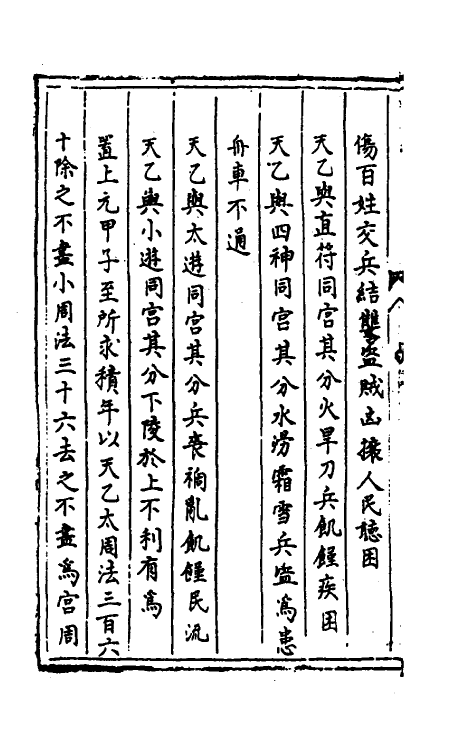 傷百姓交兵結讐盜賊凶攘人民聴困
天乙與直符同宫其分火旱刀兵飢饉疾困
天乙與四神同宫其分水澇霜雪兵盜為恚
舟車不通
天乙與太遊同宫其分兵喪禍亂飢饉民流
天乙與小遊同宫其分下陵於上不利有為
置上元甲子至所求積年以天乙太周法三百六
十除之不盡小周法三十六去之不盡為宫周